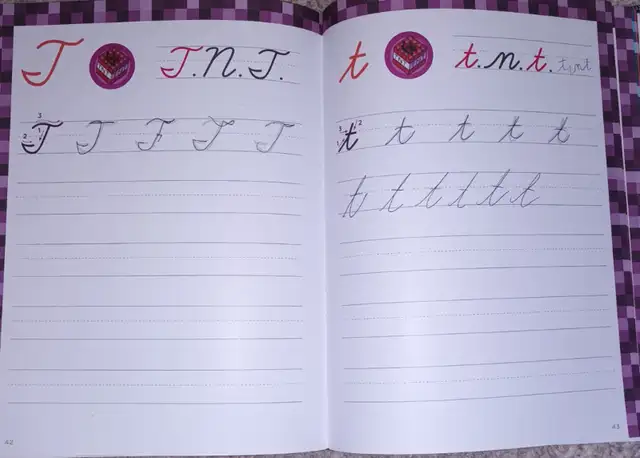 T
T.N.T.
3
2 1
T T F T T
42
t
t.n.t. t.n.t
3 2
t t t t t
t t t t t t
43